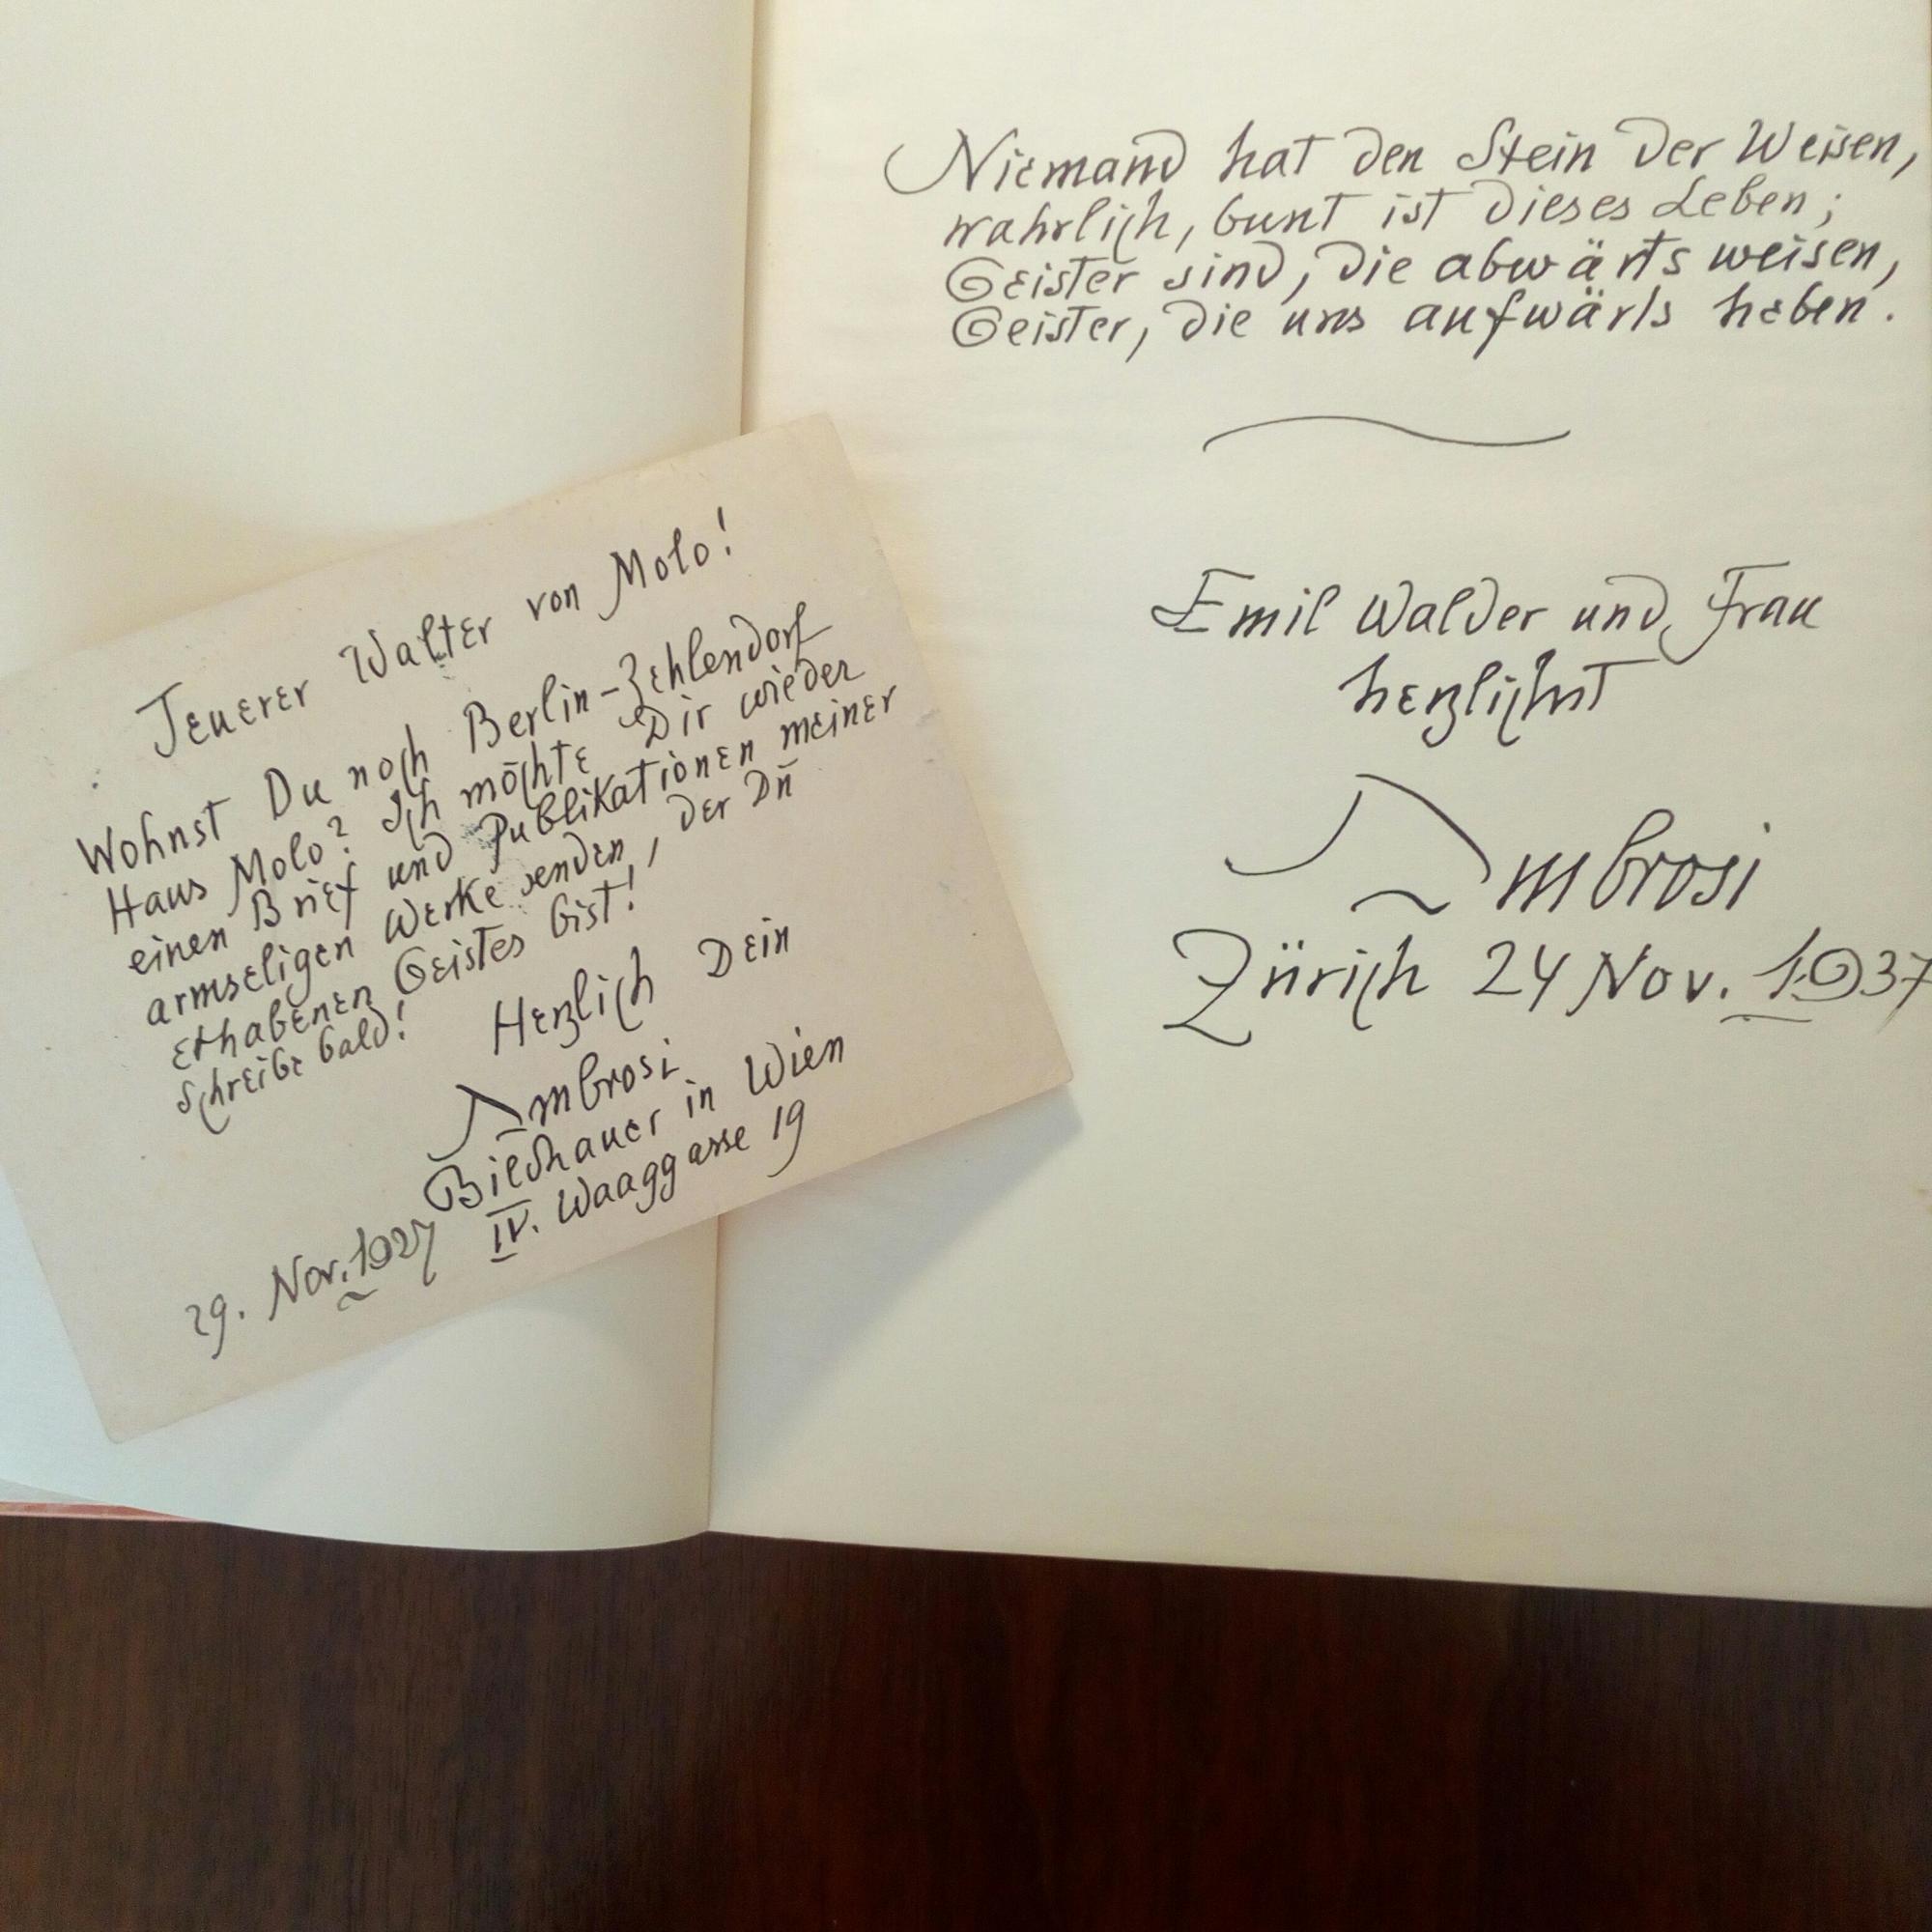 Teuerer Walter von Molo!
Wohnst Du noch Berlin-Zehlendorf
Haus Molo? Ich möchte Dir wieder
einen Brief und Publikationen meiner
armseligen Werke senden, der Du
erhabenen Geistes bist!
Schreibe bald!
Herzlich Dein
Ambrosi
Bildhauer in Wien
IV. Waaggasse 19
29. Nov. 1927
Niemand hat den Stein der Weisen,
wahrlich, bunt ist dieses Leben;
Geister sind, die abwärts weisen,
Geister, die uns aufwärts heben.
Emil Walder und Frau
herzlichst
Ambrosi
Zürich 24 Nov. 1937